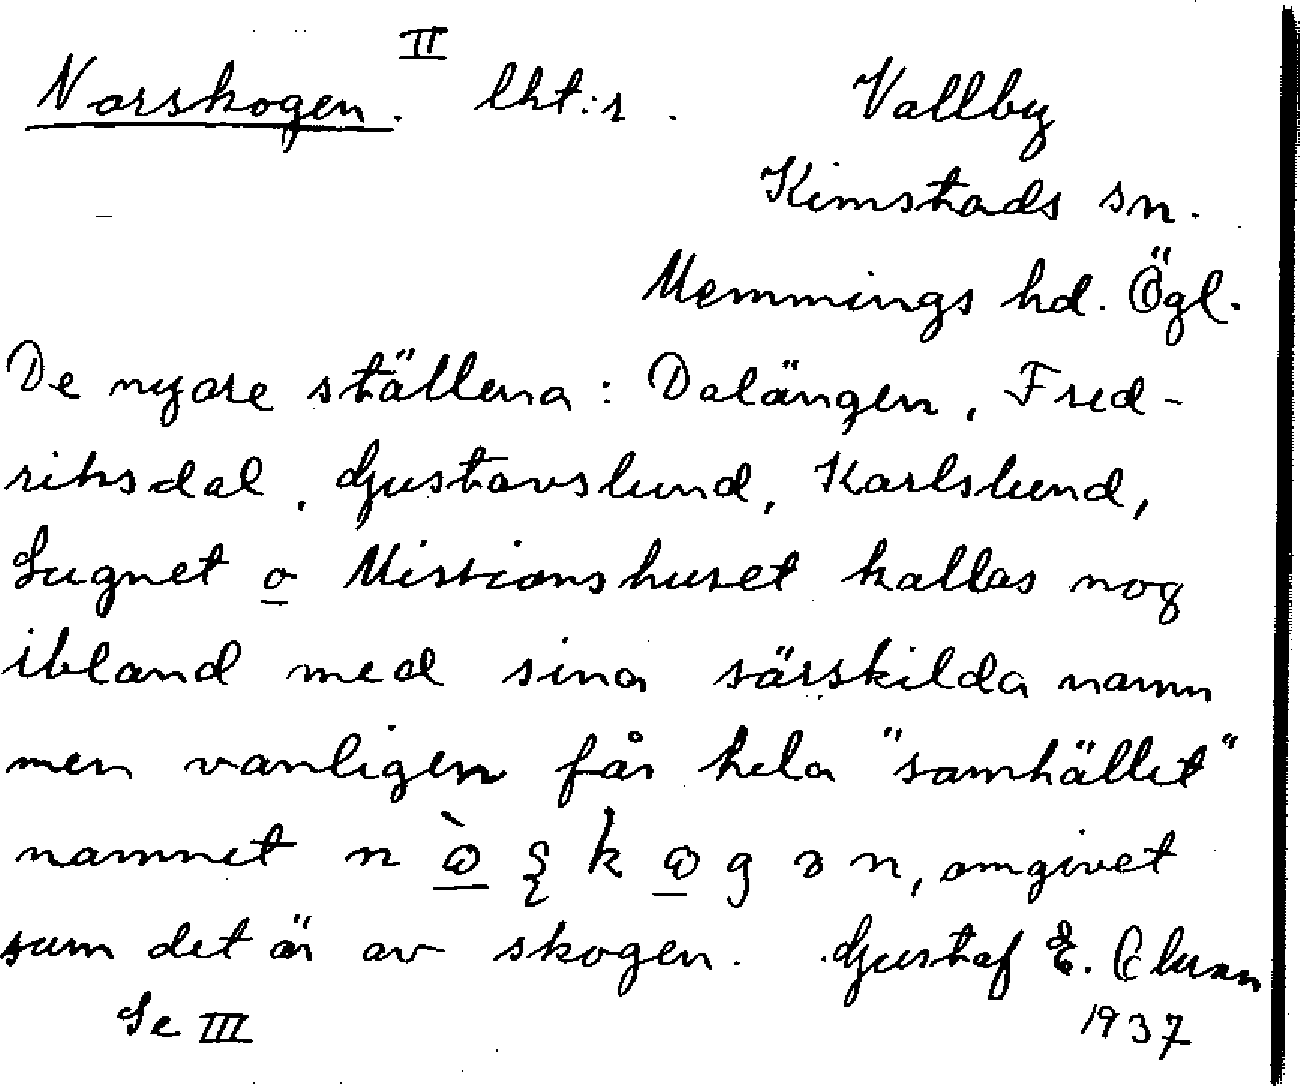 Norskogen. II lht:r. Vallby
Kimstads sn.
Memmings hd. Ögl.
De nyare ställena: Dalängen, Fred-
riksdal, Gustavslund, Karlslund,
Lugnet o Missionshuset kallas nog
ibland med sina särskilda namn
men vanligen får hela "samhället"
namnet omgivet
som det är av skogen. Gustaf E.
Se III 1937